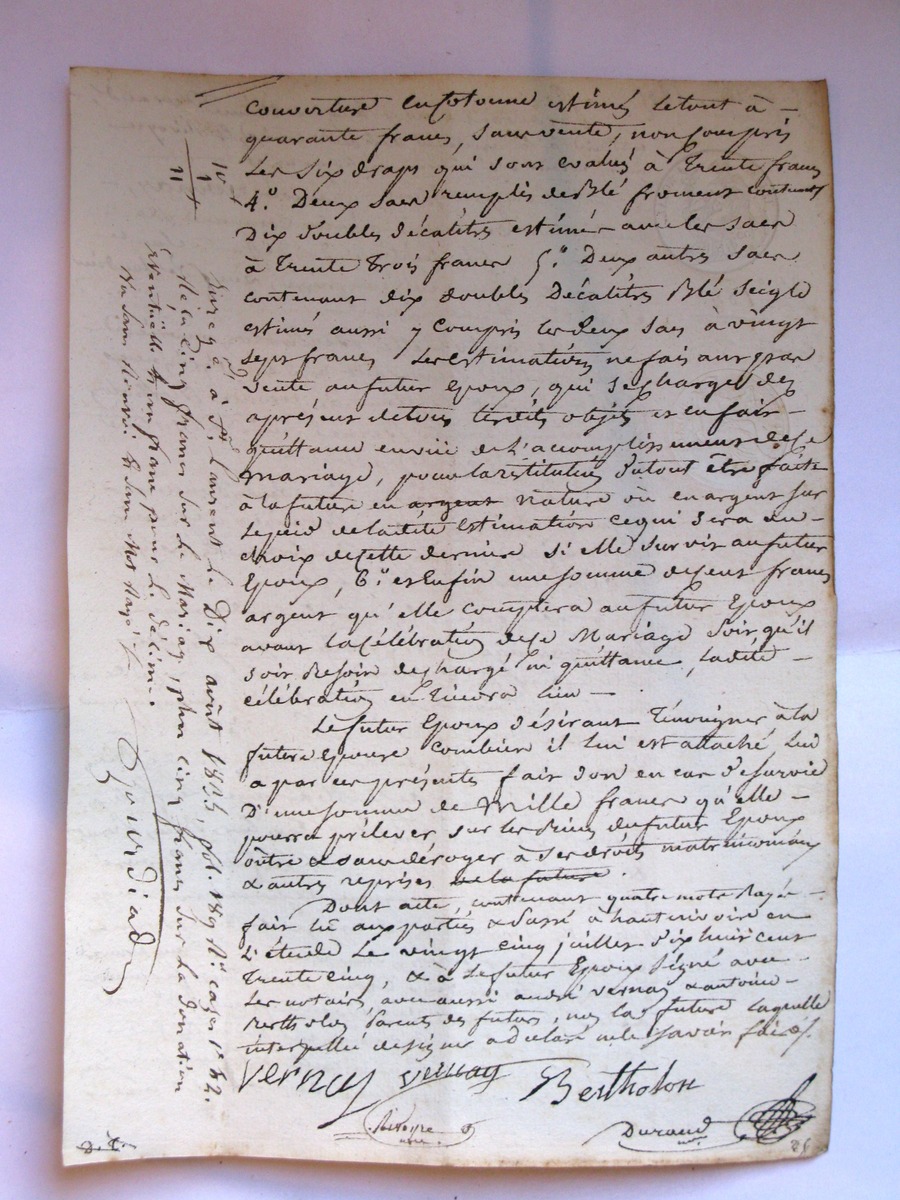 couverture en cotonne estimés le tout à
quarante francs, sans vente, non compris
les six draps qui sont évalués à Trente francs
4.° Deux sacs remplis de Blé froment contenant
Dix doubles décalitres estimés avec les sacs
à Trente Trois francs 5.° Deux autres sacs
contenant dix doubles Décalitres Blé seigle
estimés aussi y compris les deux sacs à vingt
sept francs Les estimations ne fais ant pas
vente au futur époux, qui se charge dès
àprésent de tous lesdits objets et en fait
quittance en vüe de l'acomplissement de ce
mariage, pour la restitution du tout être faite
à la future en argent nature ou en argent sur
le pied de la dite Estimation ce qui sera au
choix de cette dernière si elle survit au futur
Epoux, 6.° et Enfin une somme de cent francs
argent qu'elle comptera au futur Epoux
avant la célébration de ce Mariage soit qu'il
soit Besoin de charge ni quittance, ladite
célébration en tiendra lieu
Le futur Epoux désirant témoigner à la
future épouse combien il lui est attaché, lui
a par ces présentes fait don en cas de survie
D'une somme de Mille francs qu'elle
pourra prélever sur les biens du futur Epoux
oûtre & sans déroger à ses droits matrimoniaux
& autres reprises de la future.
Dont acte, contenant quatre mots Rayés
fait lu aux parties & Passé à haut rivoire en
L'étude Le vingt cinq juillet Dix huit cent
trente cinq, & à Le futur Epoux signé avec
les notaires avec aussi andré vernay & antoine
Bertholon Parents des futurs, non la future laquelle
interpellée de signer a déclaré ne le savoir faire
Vernay vernay Bertholon
Rivoyre Durand
10
1
11
Enregé. à St. Laurent le Dix août 1835, fol. 189 R.° cases 1re & 2.
Reçu cinq francs sur le Mariage, plus cinq francs sur la donation
Eventuelle & un franc pour le décime.
Va sans Renvoi & sans Mot Rayé